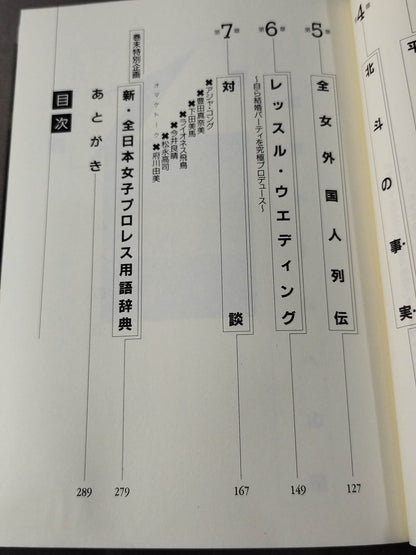 第4章
平
北斗の事実・
第5章
全女外国人列伝
127
第6章
レッスル・ウエディング
～自ら結婚パーティを究極プロデュース～
149
第7章
対談
167
✖アジャ・コング
✖豊田真奈美
✖下田美馬
✖ライオネス飛鳥
✖今井良晴
✖松永高司
オマケトーク✖府川由美
巻末特別企画
新・全日本女子プロレス用語辞典
279
あとがき
289
目次